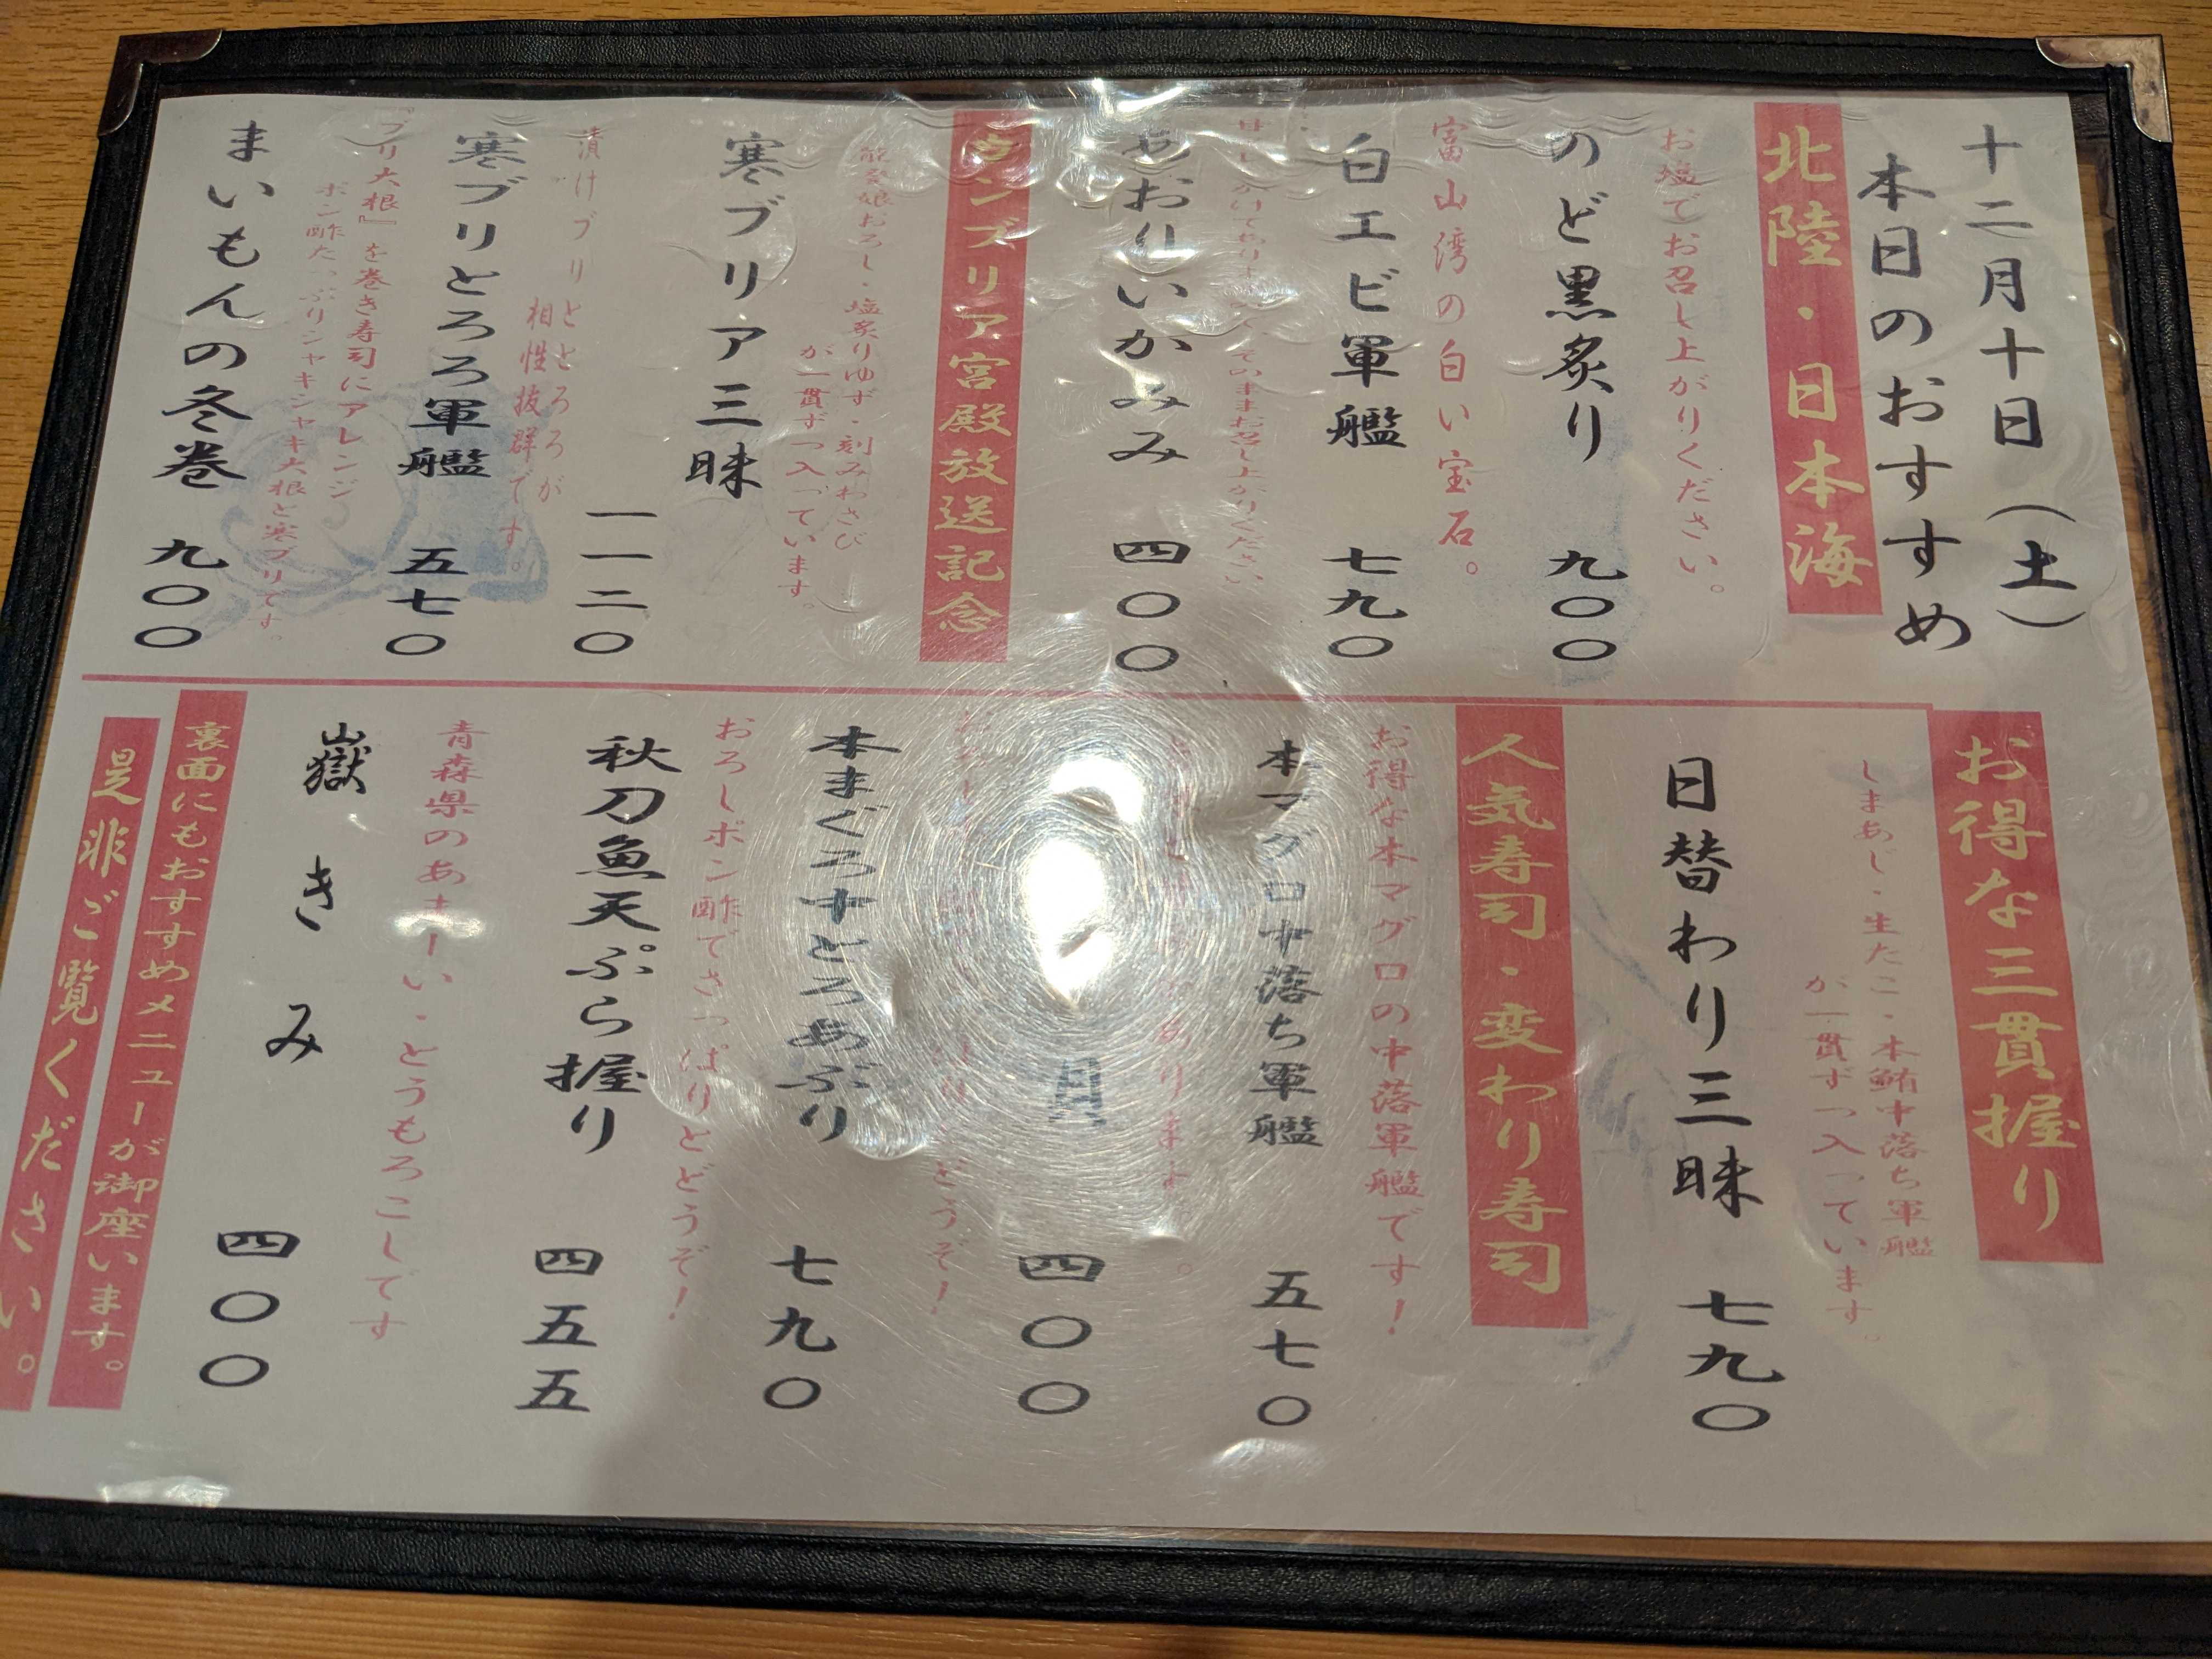 十二月十日(土)
本日のおすすめ
北陸・日本海
お塩でお召し上がりください。
のど黒炙り 九〇〇
富山湾の白い宝石。
白エビ軍艦 七九〇
そのままお召し上がりください
あおりいかみみ 四〇〇
ウンブリア宮殿放送記念
おろし・塩炙りゆず・刻みわさび
が一貫ずつ入っています。
寒ブリア三昧 一一二〇
漬けブリととろろが
相性抜群です。
寒ブリとろろ軍艦 五七〇
『ブリ大根』を巻き寿司にアレンジ
ポン酢たっぷりシャキシャキ大根と寒ブリです。
まいもんの冬巻 九〇〇
お得な三貫握り
しまあじ・生たこ・本鮪中落ち軍艦
が一貫ずつ入っています。
日替わり三昧 七九〇
人気寿司・変わり寿司
お得な本マグロの中落軍艦です!
本マグロ中落ち軍艦 五七〇
あります。
四〇〇
どうぞ!
本まぐろ中とろあぶり 七九〇
おろしポン酢でさっぱりとどうぞ!
秋刀魚天ぷら握り 四五五
青森県のあまーい・とうもろこしです
嶽きみ 四〇〇
裏面にもおすすめメニューが御座います。
是非ご覧ください。